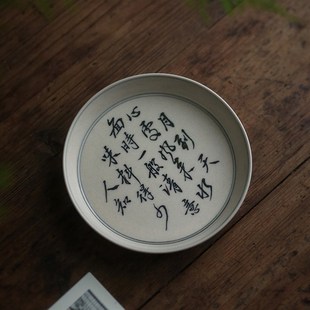 月到天
心處風來水
面時一般清意
味料得少
人知